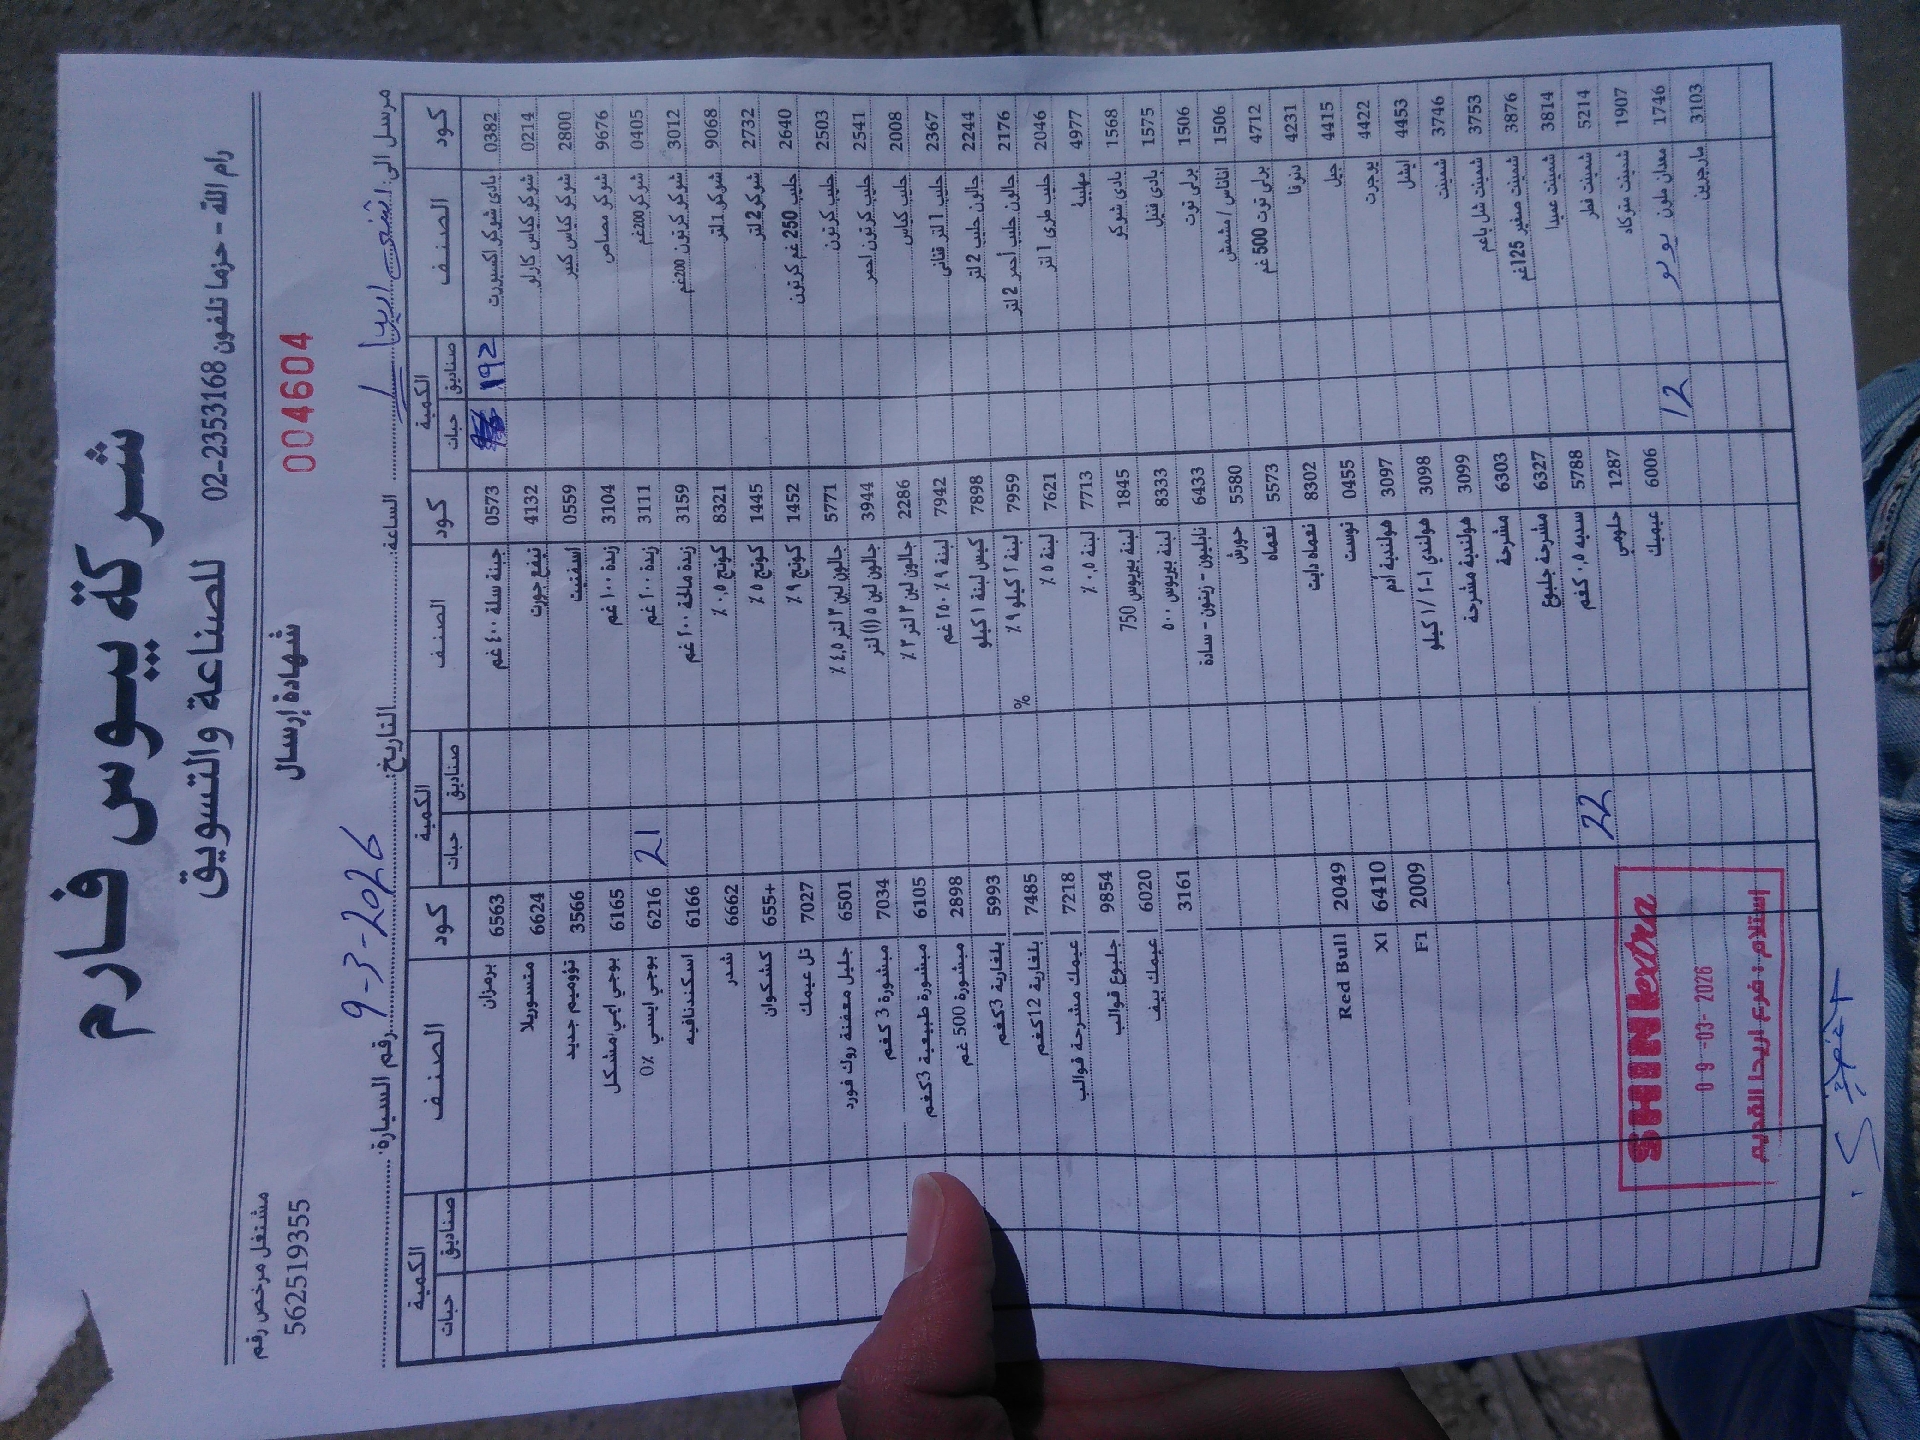 شركة بيوس فارم
للصناعة والتسويق
رام الله - حزما تلفون 02-2353168
مشتغل مرخص رقم
562519355
شهادة إرسال
004604
مرسل الى:
الساعة:
التاريخ: 9-3-2026
رقم السيارة:
كود الصنف الكمية صناديق حبات
0382 بادي شوكو اكسبورت 192
0214 شوكو كياس كارلو
2800 شوكو كياس كبير
9676 شوكو مصاص
0405 شوكو 200غم
3012 شوكو كرتون 200غم
9068 شوكو 1 لتر
2732 شوكو 2 لتر
2640 حليب 250 غم كرتون
2503 حليب كرتون
2541 حليب كرتون احمر
2008 حليب كياس
2367 حليب 1 لتر قناني
2244 جالون حليب 2 لتر
2176 جالون حليب احمر 2 لتر
2046 حليب طري 1 لتر
4977 مهلبية
1568 بادي شوكو
1575 بادي فنيل
1506 برلي توت
1506 اناناس / مشمش
4712 برلي توت 500 غم
4231 دنوفا
4415 جيل
4422 يوجرت
4453 ايشل
3746 شمينت
3753 شمينت شل باعم
3876 شمينت صغير 125غم
3814 شمينت عميدا
5214 شمينت قطر
1907 شمينت متوكاد
1746 معدان ملون يولو 12
3103 مارجرين
كود الصنف الكمية صناديق حبات
0573 جبنة سلة ٤٠٠ غم
4132 نيفع جورت
0559 اسفنيت
3104 زبدة ١٠٠ غم
3111 زبدة ٢٠٠ غم 21
3159 زبدة مالحة ٢٠٠ غم
8321 كوتج ٠,٥ ٪
1445 كوتج ٥ ٪
1452 كوتج ٩ ٪
5771 جالون لبن ٣ لتر ٤,٥ ٪
3944 جالون لبن ٥ (١) لتر
2286 جالون لبن ٣ لتر ٣ ٪
7942 لبنة ٩ ٪ ٢٥٠ غم
7898 كيس لبنة ١ كيلو
7959 لبنة ٢ كيلو ٩ ٪ %
7621 لبنة ٥ ٪
7713 لبنة ٠,٥ ٪
1845 لبنة بيريوس 750
8333 لبنة بيريوس ٥٠٠
6433 نابليون - زيتون - سادة
5580 حورش
5573 نعماه
8302 نعماه دايت
0455 توست
3097 هولندية ادم
3098 هولندي ١-٢ / ١ كيلو
3099 هولندية مشرحة
6303 مشرحة
6327 مشرحة جلبوع
5788 سبيه ٠,٥ كغم 22
1287 حلومي
6006 عيميك
كود الصنف الكمية صناديق حبات
6563 برمزان
6624 متسوريلا
3566 نؤوميم جديد
6165 يوجي ايمي/مشكل
6216 يوجي ايسي ٪0
6166 اسكندنافيه
6662 شدر
655+ كشكوان
7027 تل عيمك
6501 جليل معفنة روك فورد
7034 مبشورة 3 كغم
6105 مبشورة طبيعية 3كغم
2898 مبشورة 500 غم
5993 بلغارية 3كغم
7485 بلغارية 12كغم
7218 عيمك مشرحة قوالب
9854 جلبوع قوالب
6020 عيمك بيف
3161
2049 Red Bull
6410 Xl
2009 F1
SHINI extra
09-03-2026
استلام : فرع اريحا القديم